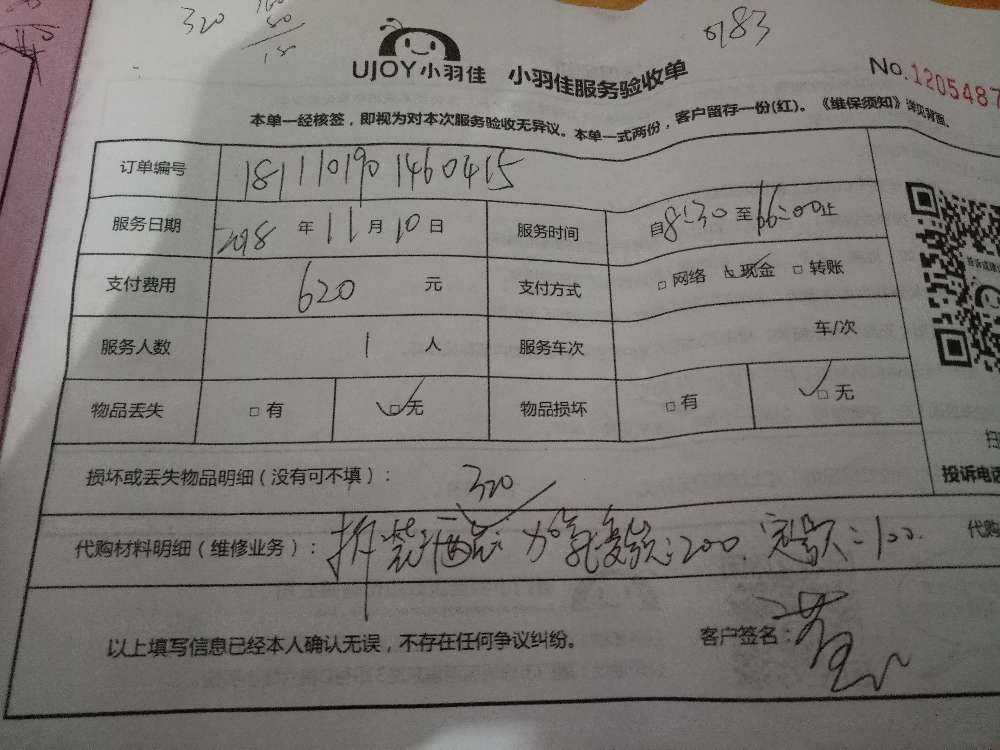 320
0783
UJOY小羽佳 小羽佳服务验收单
No.1205487
本单一经核签，即视为对本次服务验收无异议。本单一式两份，客户留存一份(红)。《维保须知》详见背面。
订单编号 1811101901460415
服务日期 2018 年 11 月 10 日 服务时间 自8:30至16:00止
支付费用 620 元 支付方式 □网络 □现金 □转账
服务人数 1 人 服务车次 车/次
物品丢失 □有 □无 物品损坏 □有 □无
损坏或丢失物品明细（没有可不填）：
投诉电话
320
代购材料明细（维修业务）： 拆装 加氟 :200. :100. 代购
以上填写信息已经本人确认无误，不存在任何争议纠纷。 客户签名：